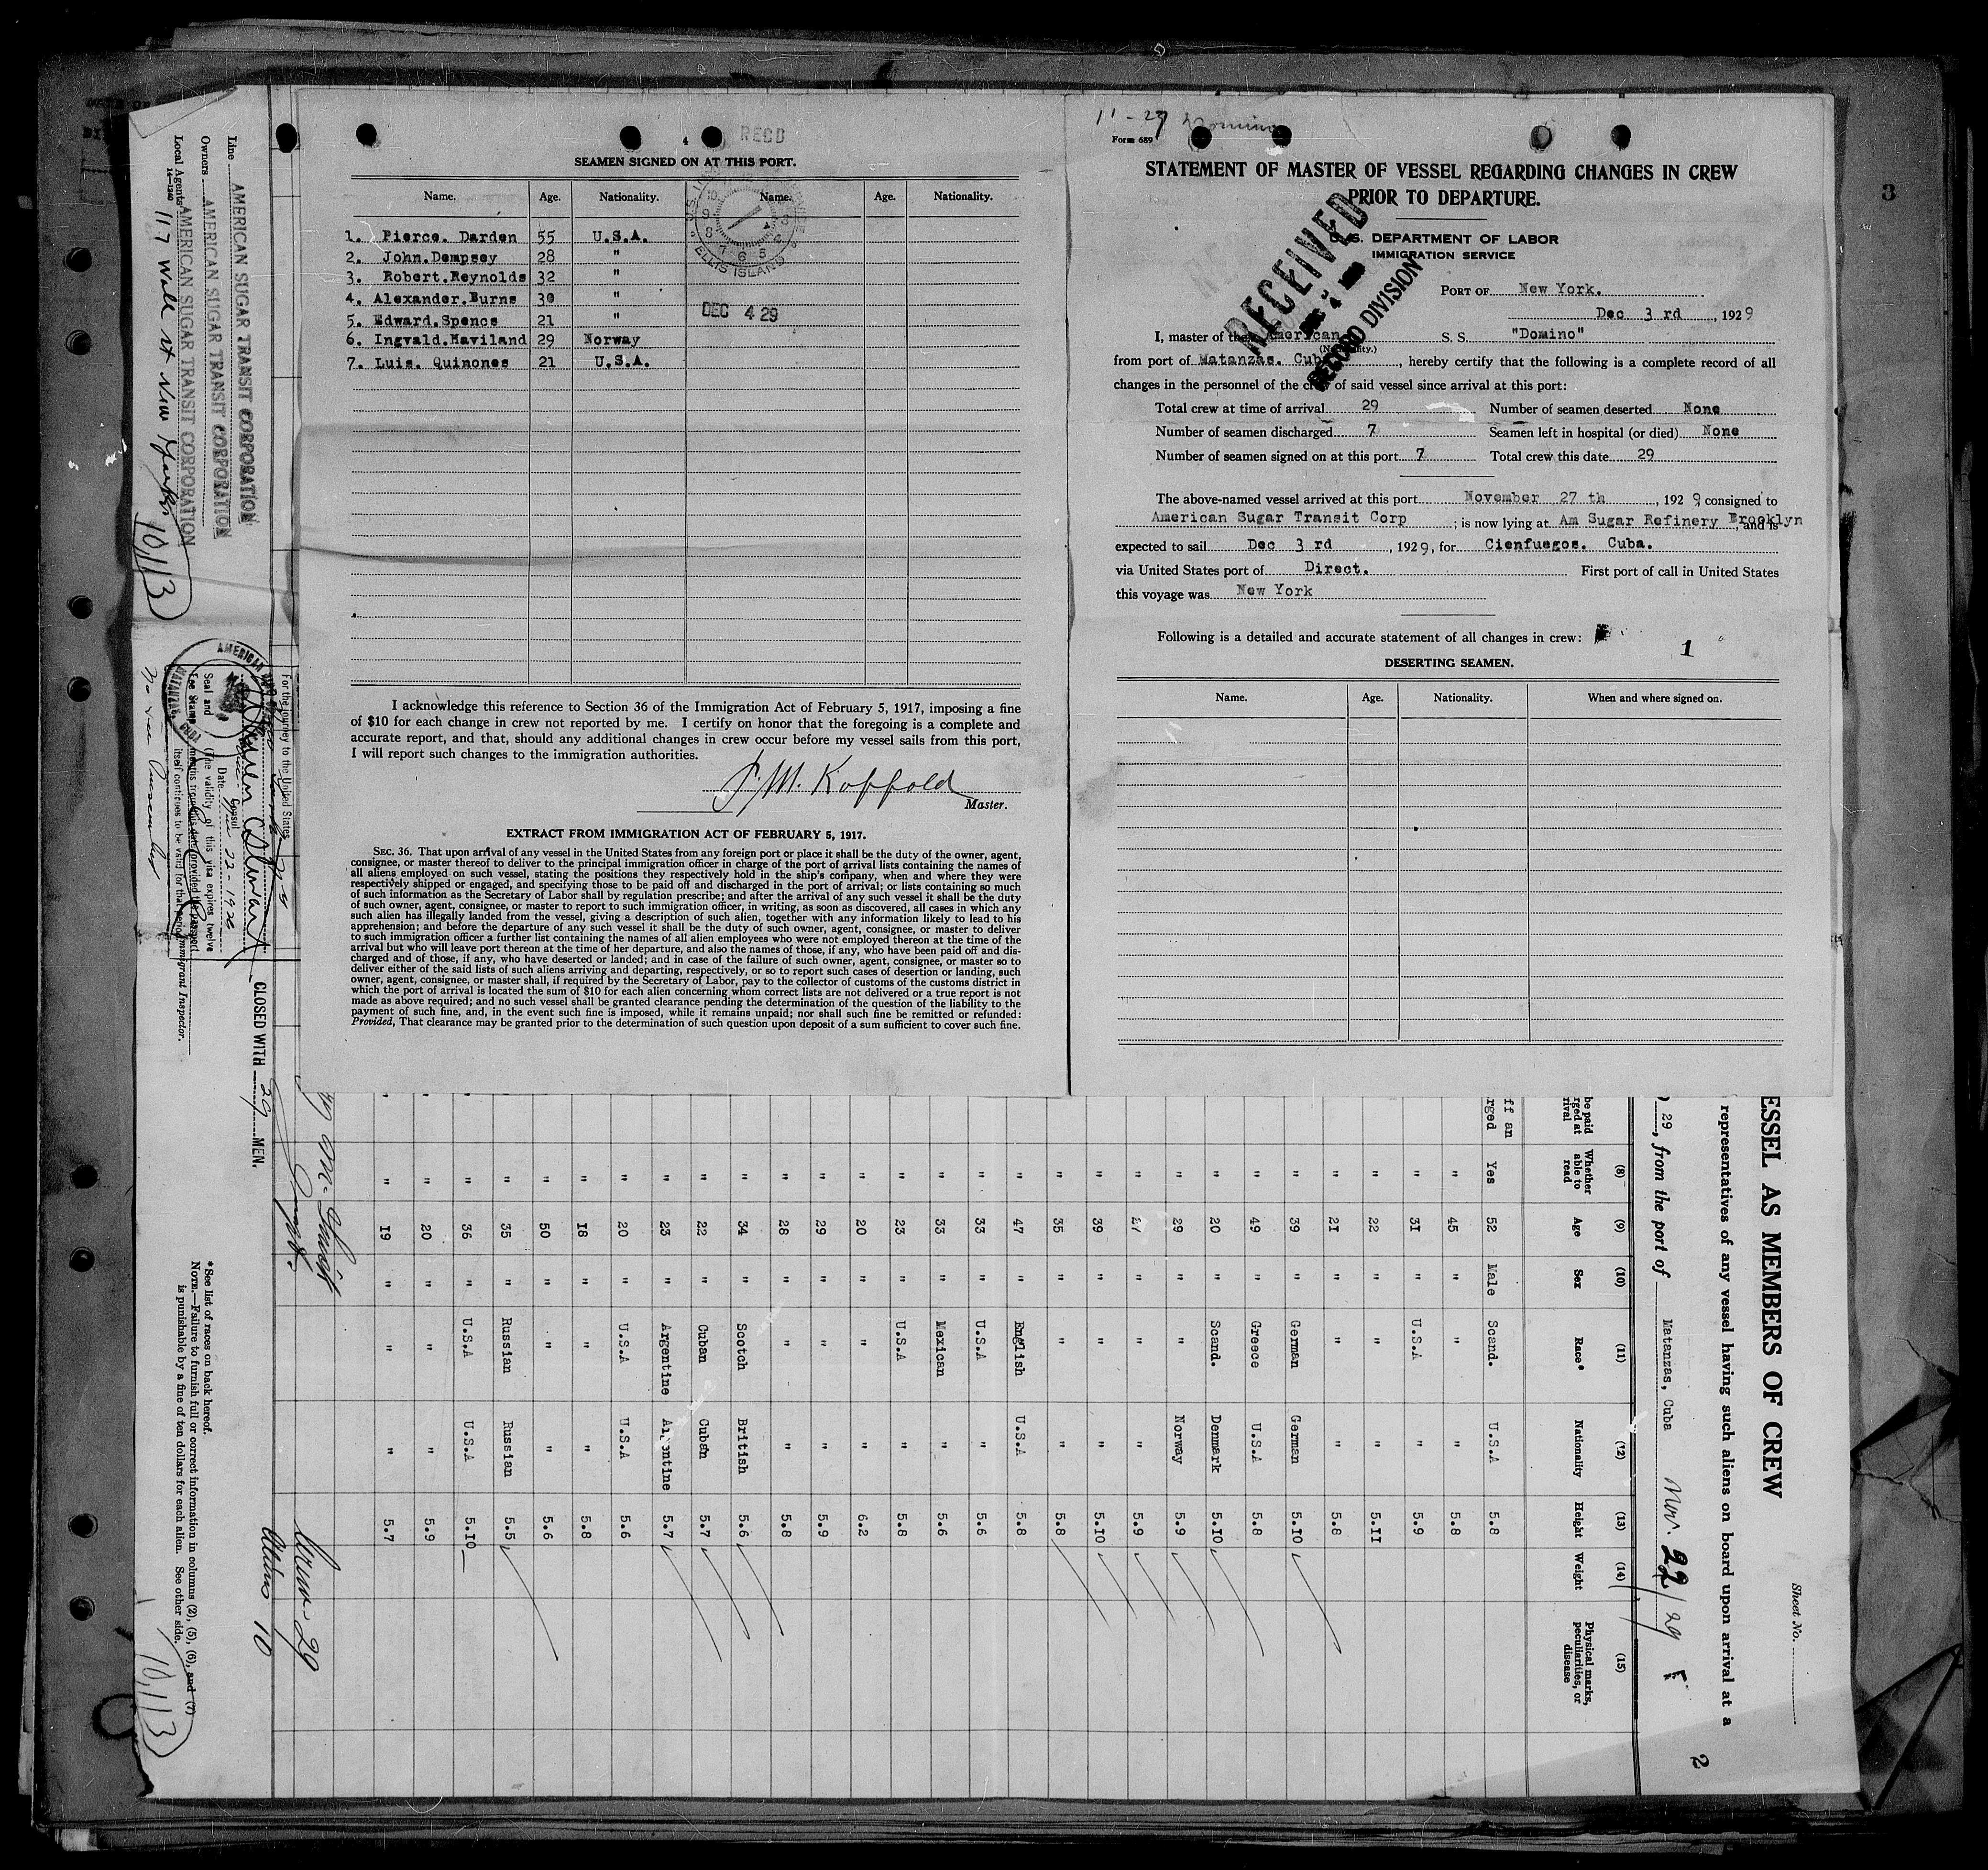 3
4 RECD
SEAMEN SIGNED ON AT THIS PORT.
Name. Age. Nationality. Name. Age. Nationality.
1. Pierce. Darden 55 U.S.A.
2. John.Dempsey 28 "
3. Robert.Reynolds 32 "
4. Alexander.Burns 30 "
5. Edward.Spencs 21 "
6. Ingvald.Haviland 29 Norway
7. Luis. Quinones 21 U.S.A.
ELLIS ISLAND
DEC 4 29
I acknowledge this reference to Section 36 of the Immigration Act of February 5, 1917, imposing a fine
of $10 for each change in crew not reported by me. I certify on honor that the foregoing is a complete and
accurate report, and that, should any additional changes in crew occur before my vessel sails from this port,
I will report such changes to the immigration authorities.
P. M. Koffold
Master.
EXTRACT FROM IMMIGRATION ACT OF FEBRUARY 5, 1917.
SEC. 36. That upon arrival of any vessel in the United States from any foreign port or place it shall be the duty of the owner, agent,
consignee, or master thereof to deliver to the principal immigration officer in charge of the port of arrival lists containing the names of
all aliens employed on such vessel, stating the positions they respectively hold in the ship's company, when and where they were
respectively shipped or engaged, and specifying those to be paid off and discharged in the port of arrival; or lists containing so much
of such information as the Secretary of Labor shall by regulation prescribe; and after the arrival of any such vessel it shall be the duty
of such owner, agent, consignee, or master to report to such immigration officer, in writing, as soon as discovered, all cases in which any
such alien has illegally landed from the vessel, giving a description of such alien, together with any information likely to lead to his
apprehension; and before the departure of any such vessel it shall be the duty of such owner, agent, consignee, or master to deliver
to such immigration officer a further list containing the names of all alien employees who were not employed thereon at the time of the
arrival but who will leave port thereon at the time of her departure, and also the names of those, if any, who have been paid off and dis-
charged and of those, if any, who have deserted or landed; and in case of the failure of such owner, agent, consignee, or master so to
deliver either of the said lists of such aliens arriving and departing, respectively, or so to report such cases of desertion or landing, such
owner, agent, consignee, or master shall, if required by the Secretary of Labor, pay to the collector of customs of the customs district in
which the port of arrival is located the sum of $10 for each alien concerning whom correct lists are not delivered or a true report is not
made as above required; and no such vessel shall be granted clearance pending the determination of the question of the liability to the
payment of such fine, and, in the event such fine is imposed, while it remains unpaid; nor shall such fine be remitted or refunded:
Provided, That clearance may be granted prior to the determination of such question upon deposit of a sum sufficient to cover such fine.
11-27 Domino
Form 689
STATEMENT OF MASTER OF VESSEL REGARDING CHANGES IN CREW
PRIOR TO DEPARTURE.
U. S. DEPARTMENT OF LABOR
IMMIGRATION SERVICE
RECEIVED
RECORD DIVISION
PORT OF New York.
Dec 3 rd, 1929
I, master of the American S. S. "Domino"
(Nationality.)
from port of Matanzas. Cuba, hereby certify that the following is a complete record of all
changes in the personnel of the crew of said vessel since arrival at this port:
Total crew at time of arrival 29 Number of seamen deserted None
Number of seamen discharged 7 Seamen left in hospital (or died) None
Number of seamen signed on at this port 7 Total crew this date 29
The above-named vessel arrived at this port November 27 th, 1929 consigned to
American Sugar Transit Corp; is now lying at Am Sugar Refinery Brooklyn, and is
expected to sail Dec 3 rd, 1929, for Cienfuegos. Cuba.
via United States port of Direct. First port of call in United States
this voyage was New York
Following is a detailed and accurate statement of all changes in crew:
1
DESERTING SEAMEN.
Name. Age. Nationality. When and where signed on.
Line AMERICAN SUGAR TRANSIT CORPORATION
Owners AMERICAN SUGAR TRANSIT CORPORATION
Local Agents AMERICAN SUGAR TRANSIT CORPORATION
14-1240
117 Wall St New York
10,113
For the journey to the United States
AMERICAN
MATANZAS, CUBA
Seal and
Fee Stamp
Consul
Date 22-1929
(The validity of this visa expires twelve
months from this date, provided the passport
itself continues to be valid for that period
Immigrant Inspector.
CLOSED WITH 29 MEN.
Sheet No.
ESSEL AS MEMBERS OF CREW
representatives of any vessel having such aliens on board upon arrival at a
29, from the port of Matanzas, Cuba Nov 22/29
2
be paid
rged at
rival
(8) Whether able to read
(9) Age
(10) Sex
(11) Race*
(12) Nationality
(13) Height
(14) Weight
(15) Physical marks, peculiarities, or disease
ff an
rged Yes 52 Male Scand. U.S.A 5.8
" 45 " " " 5.8
" 31 " U.S.A " 5.9
" 22 " " " 5.11
" 21 " " " 5.8
" 39 " German German 5.10
" 49 " Greece U.S.A 5.8
" 20 " Scand. Denmark 5.10
" 29 " " Norway 5.9
" 27 " " " 5.9
" 39 " " " 5.10
" 35 " " " 5.8
" 47 " English U.S.A 5.8
" 33 " U.S.A " 5.6
" 33 " Mexican " 5.6
" 23 " U.S.A " 5.8
" 20 " " " 6.2
" 29 " " " 5.9
" 28 " " " 5.8
" 34 " Scotch British 5.6
" 22 " Cuban Cuban 5.7
" 23 " Argentine Argentine 5.7
" 20 " U.S.A U.S.A 5.6
" 18 " " " 5.8
" 50 " " " 5.6
" 35 " Russian Russian 5.5
" 36 " U.S.A U.S.A 5.10
" 20 " " " 5.9
" 19 " " " 5.7
Crew 29
Aliens 10
*See list of races on back hereof.
NOTE.—Failure to furnish full or correct information in columns (2), (5), (6), and (7)
is punishable by a fine of ten dollars for each alien. See other side.
10,113